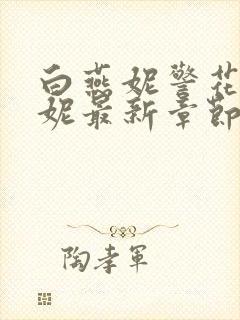 白燕妮警花
妮最新章節
陶孝军